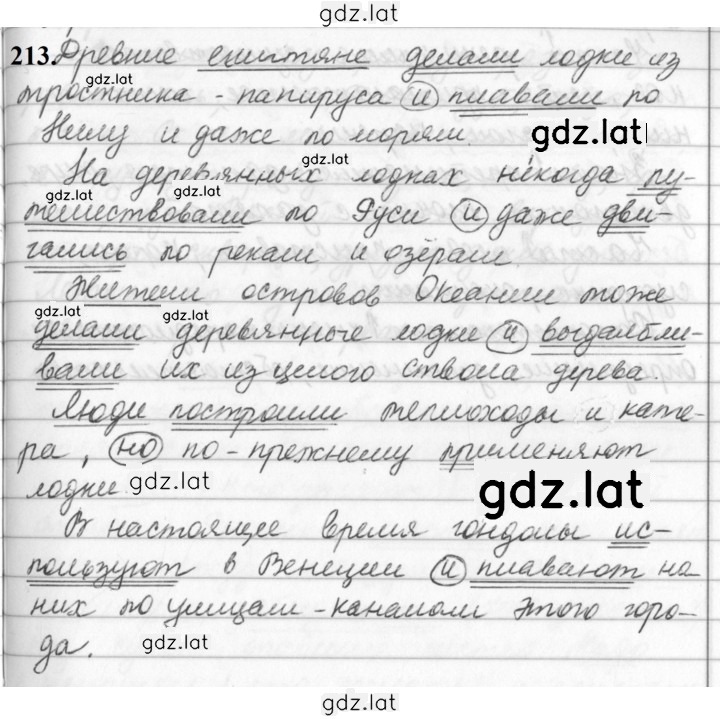 gdz.lat
213. Древние египтяне делали лодки из
gdz.lat
тростника - папируса и плавали по
Нилу и даже по морям.
gdz.lat
На деревянных лодках некогда пу-
gdz.lat
gdz.lat
тешествовали по Руси и даже дви-
гались по рекам и озёрам.
Жители островов Океании тоже
gdz.lat
gdz.lat
делали деревянные лодки и выдалбли-
вали их из целого ствола дерева.
Люди построили теплоходы и кате-
ра, но по-прежнему применяют
лодки.
gdz.lat
gdz.lat
В настоящее время гондолы ис-
пользуют в Венеции и плавают на
них по улицам-каналам этого горо-
да.
gdz.lat
gdz.lat